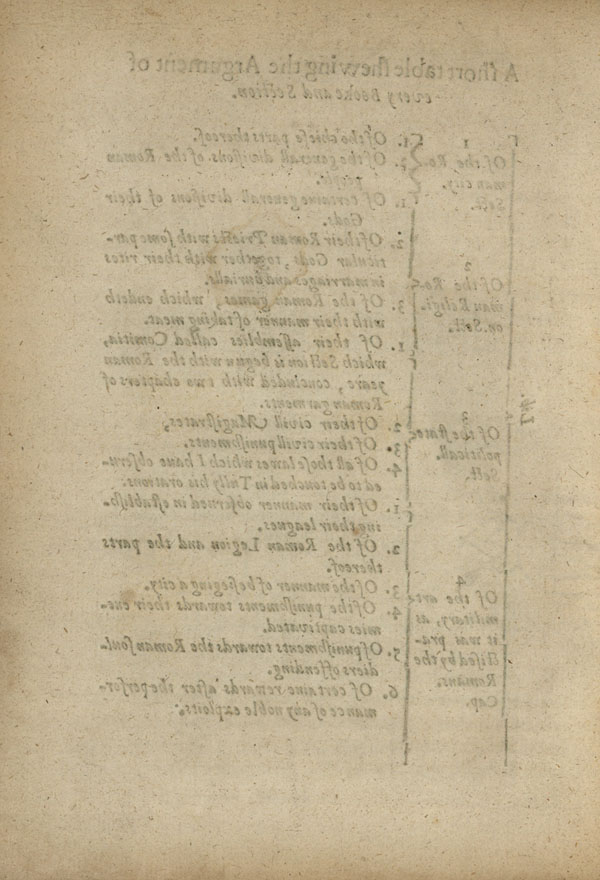 A ſhort table ſhewing the Argument of
every Booke and Section.
1
Of the Ro-
man city.
Sect.
1. Of the chiefe parts thereof.
2. Of the generall diviſions of the Roman
people.
2
Of the Ro-
man Religi-
on. Sect.
1. Of certaine generall diviſions of their
Gods.
2. Of their Roman Prieſts with ſome par-
ticular Gods, together with their rites
in marriages and burialls.
3. Of the Roman games, which endeth
with their manner of taking meat.
3
Of the ſtate
politicall.
Sect.
1. Of their aſſemblies called Comitia,
which Section is begun with the Roman
yeare, concluded with two chapters of
Roman garments.
2. Of their civill Magiſtrates,
3. Of their civill puniſhments.
4. Of all thoſe lawes which I have obſerv-
ed to be touched in Tully his orations.
4
Of the art
military, as
it was pra-
ctiſed by the
Romans.
Cap.
1. Of their manner obſerved in eſtabliſh-
ing their leagues.
2. Of the Roman Legion and the parts
thereof.
3. Of the manner of beſieging a city.
4. Of the puniſhments towards their ene-
mies captivated.
5. Of puniſhments towards the Roman ſoul-
diers offending.
6. Of certaine rewards after the perfor-
mance of any noble exploits.